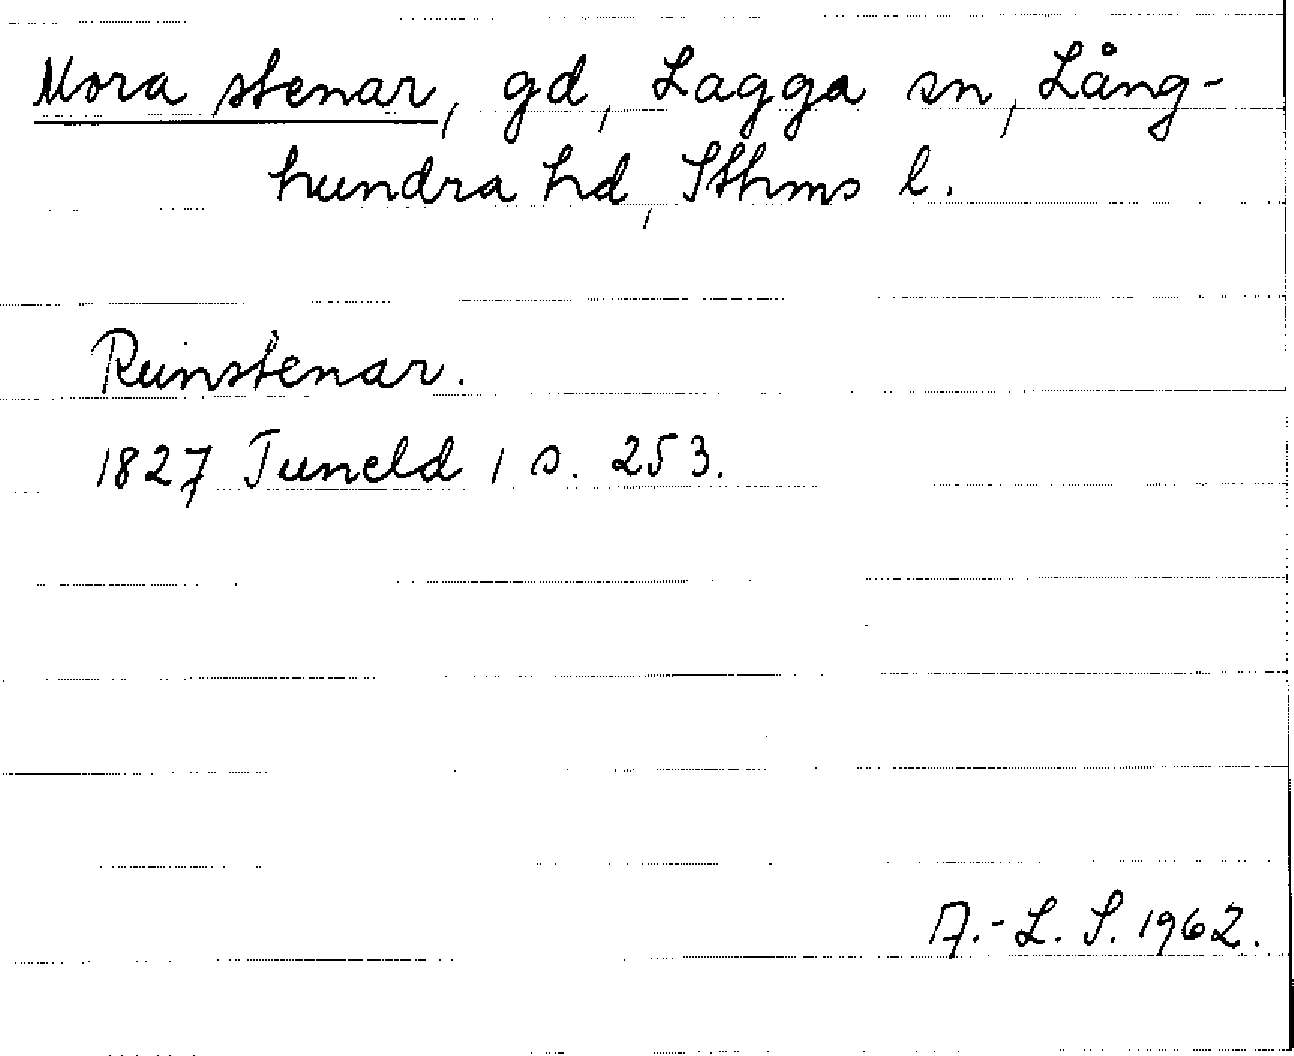 Mora stenar, gd, Lagga sn, Lång-
hundra hd, Sthms l.
Runstenar.
1827 Tuneld 1 s. 253.
A.-L. S. 1962.